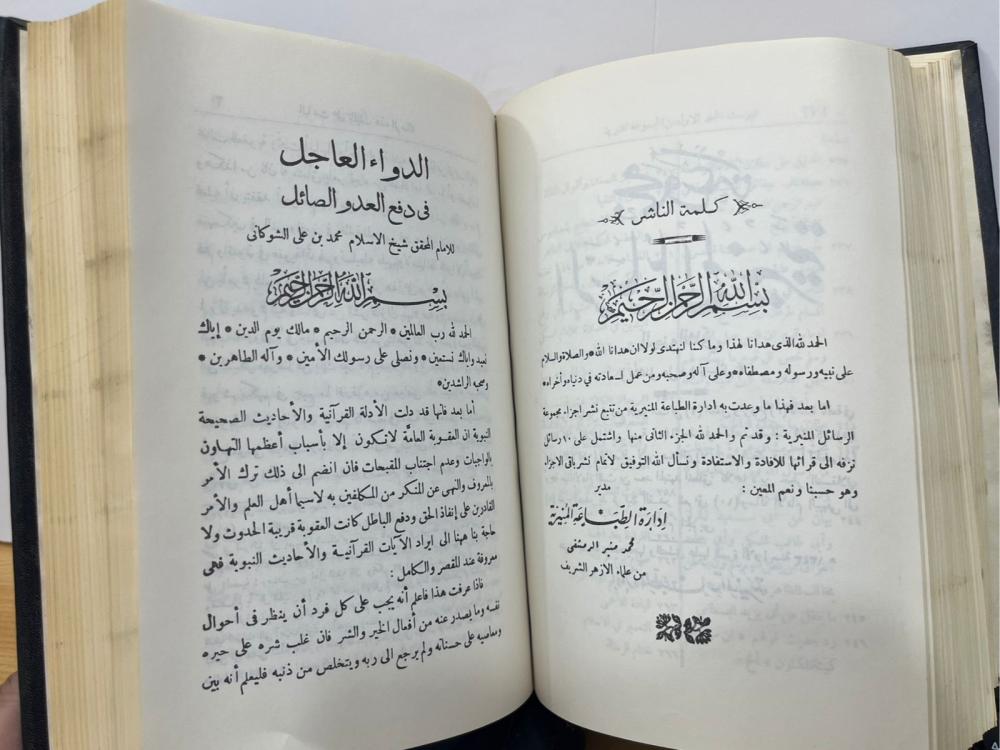 كلمة الناشر
بسم الله الرحمن الرحيم
الحمد لله الذى هدانا لهذا وما كنا لنهتدى لولا ان هدانا الله * والصلاة والسلام
على نبيه ورسوله ومصطفاه * وعلى آله وصحبه ومن عمل لسعادته في دنياه وأخراه *
اما بعد فهذا ما وعدت به ادارة الطباعة المنيرية من تتبع نشر اجزاء مجموعة
الرسائل المنيرية : وقد تم والحمد لله الجزء الثانى منها واشتمل على ١٠ رسائل
نزفه الى قرائها للافادة والاستفادة ونسأل الله التوفيق لاتمام نشر باقى الاجزاء
وهو حسبنا ونعم المعين :
مدير
إدارة الطباعة المنيرية
محمد منير الدمشقى
من علماء الازهر الشريف
الدواء العاجل
فى دفع العدو الصائل
للامام المحقق شيخ الاسلام محمد بن على الشوكانى
بسم الله الرحمن الرحيم
الحمد لله رب العالمين * الرحمن الرحيم * مالك يوم الدين * إياك
نعبد وإياك نستعين * ونصلى على رسولك الأمين * وآله الطاهرين *
وصحبه الراشدين *
أما بعد فانها قد دلت الأدلة القرآنية والأحاديث الصحيحة
النبوية ان العقوبة العامَّة لا تكون إلا بأسباب أعظمها التهاون
بالواجبات وعدم اجتناب المقبحات فان انضم الى ذلك ترك الأمر
بالمعروف والنهى عن المنكر من المكلفين به لاسيما أهل العلم والأمر
القادرين على إنفاذ الحق ودفع الباطل كانت العقوبة قريبة الحدوث ولا
حاجة بنا ههنا الى ايراد الآيات القرآنية والأحاديث النبوية فهى
معروفة عند المقصر والكامل :
فاذا عرفت هذا فاعلم أنه يجب على كل فرد أن ينظر فى أحوال
نفسه وما يصدر عنه من أفعال الخير والشر فان غلب شره على خيره
ومعاصيه على حسناته ولم يرجع الى ربه ويتخلص من ذنبه فليعلم أنه بين